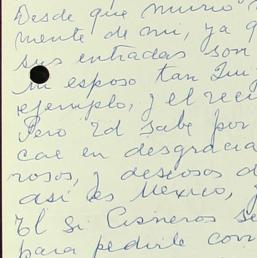 Desde que murió
mente de mi, ya q
sus entradas son
mi esposo tan
ejemplo, y el reci
Pero Ud sabe por
cae en desgracia
rosos, y deseosos d
así es México,
El Sr Cisneros se
para pedirle con